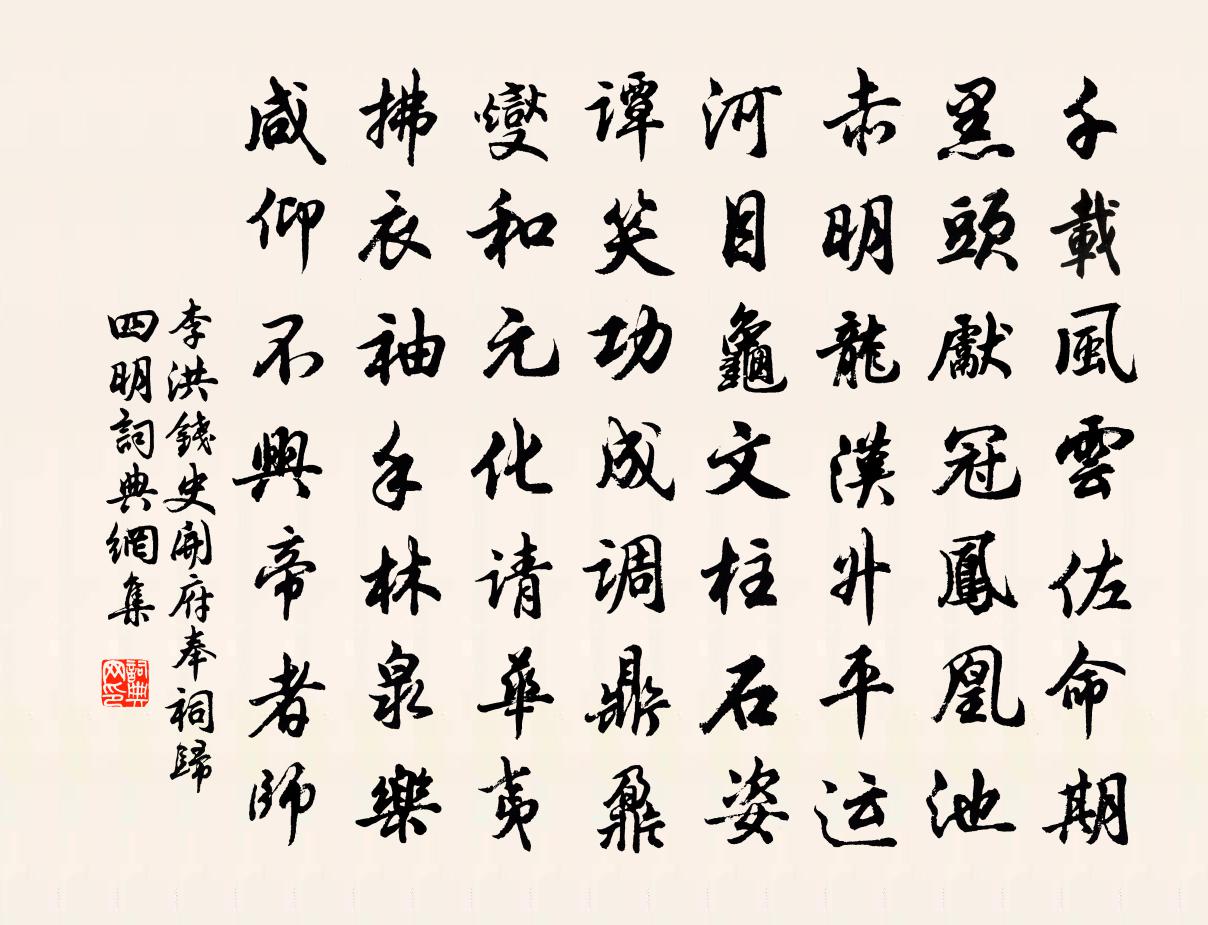 千載風雲佐命期
黑頭獻冠鳳凰池
赤明龍漢升平运
河目龜文柱石姿
谭笑功成调鼎鼐
燮和元化请華夷
拂衣袖手林泉樂
咸仰不興帝者師
李洪錢史開府奉祠歸
四明詞典網集
詞典
网印